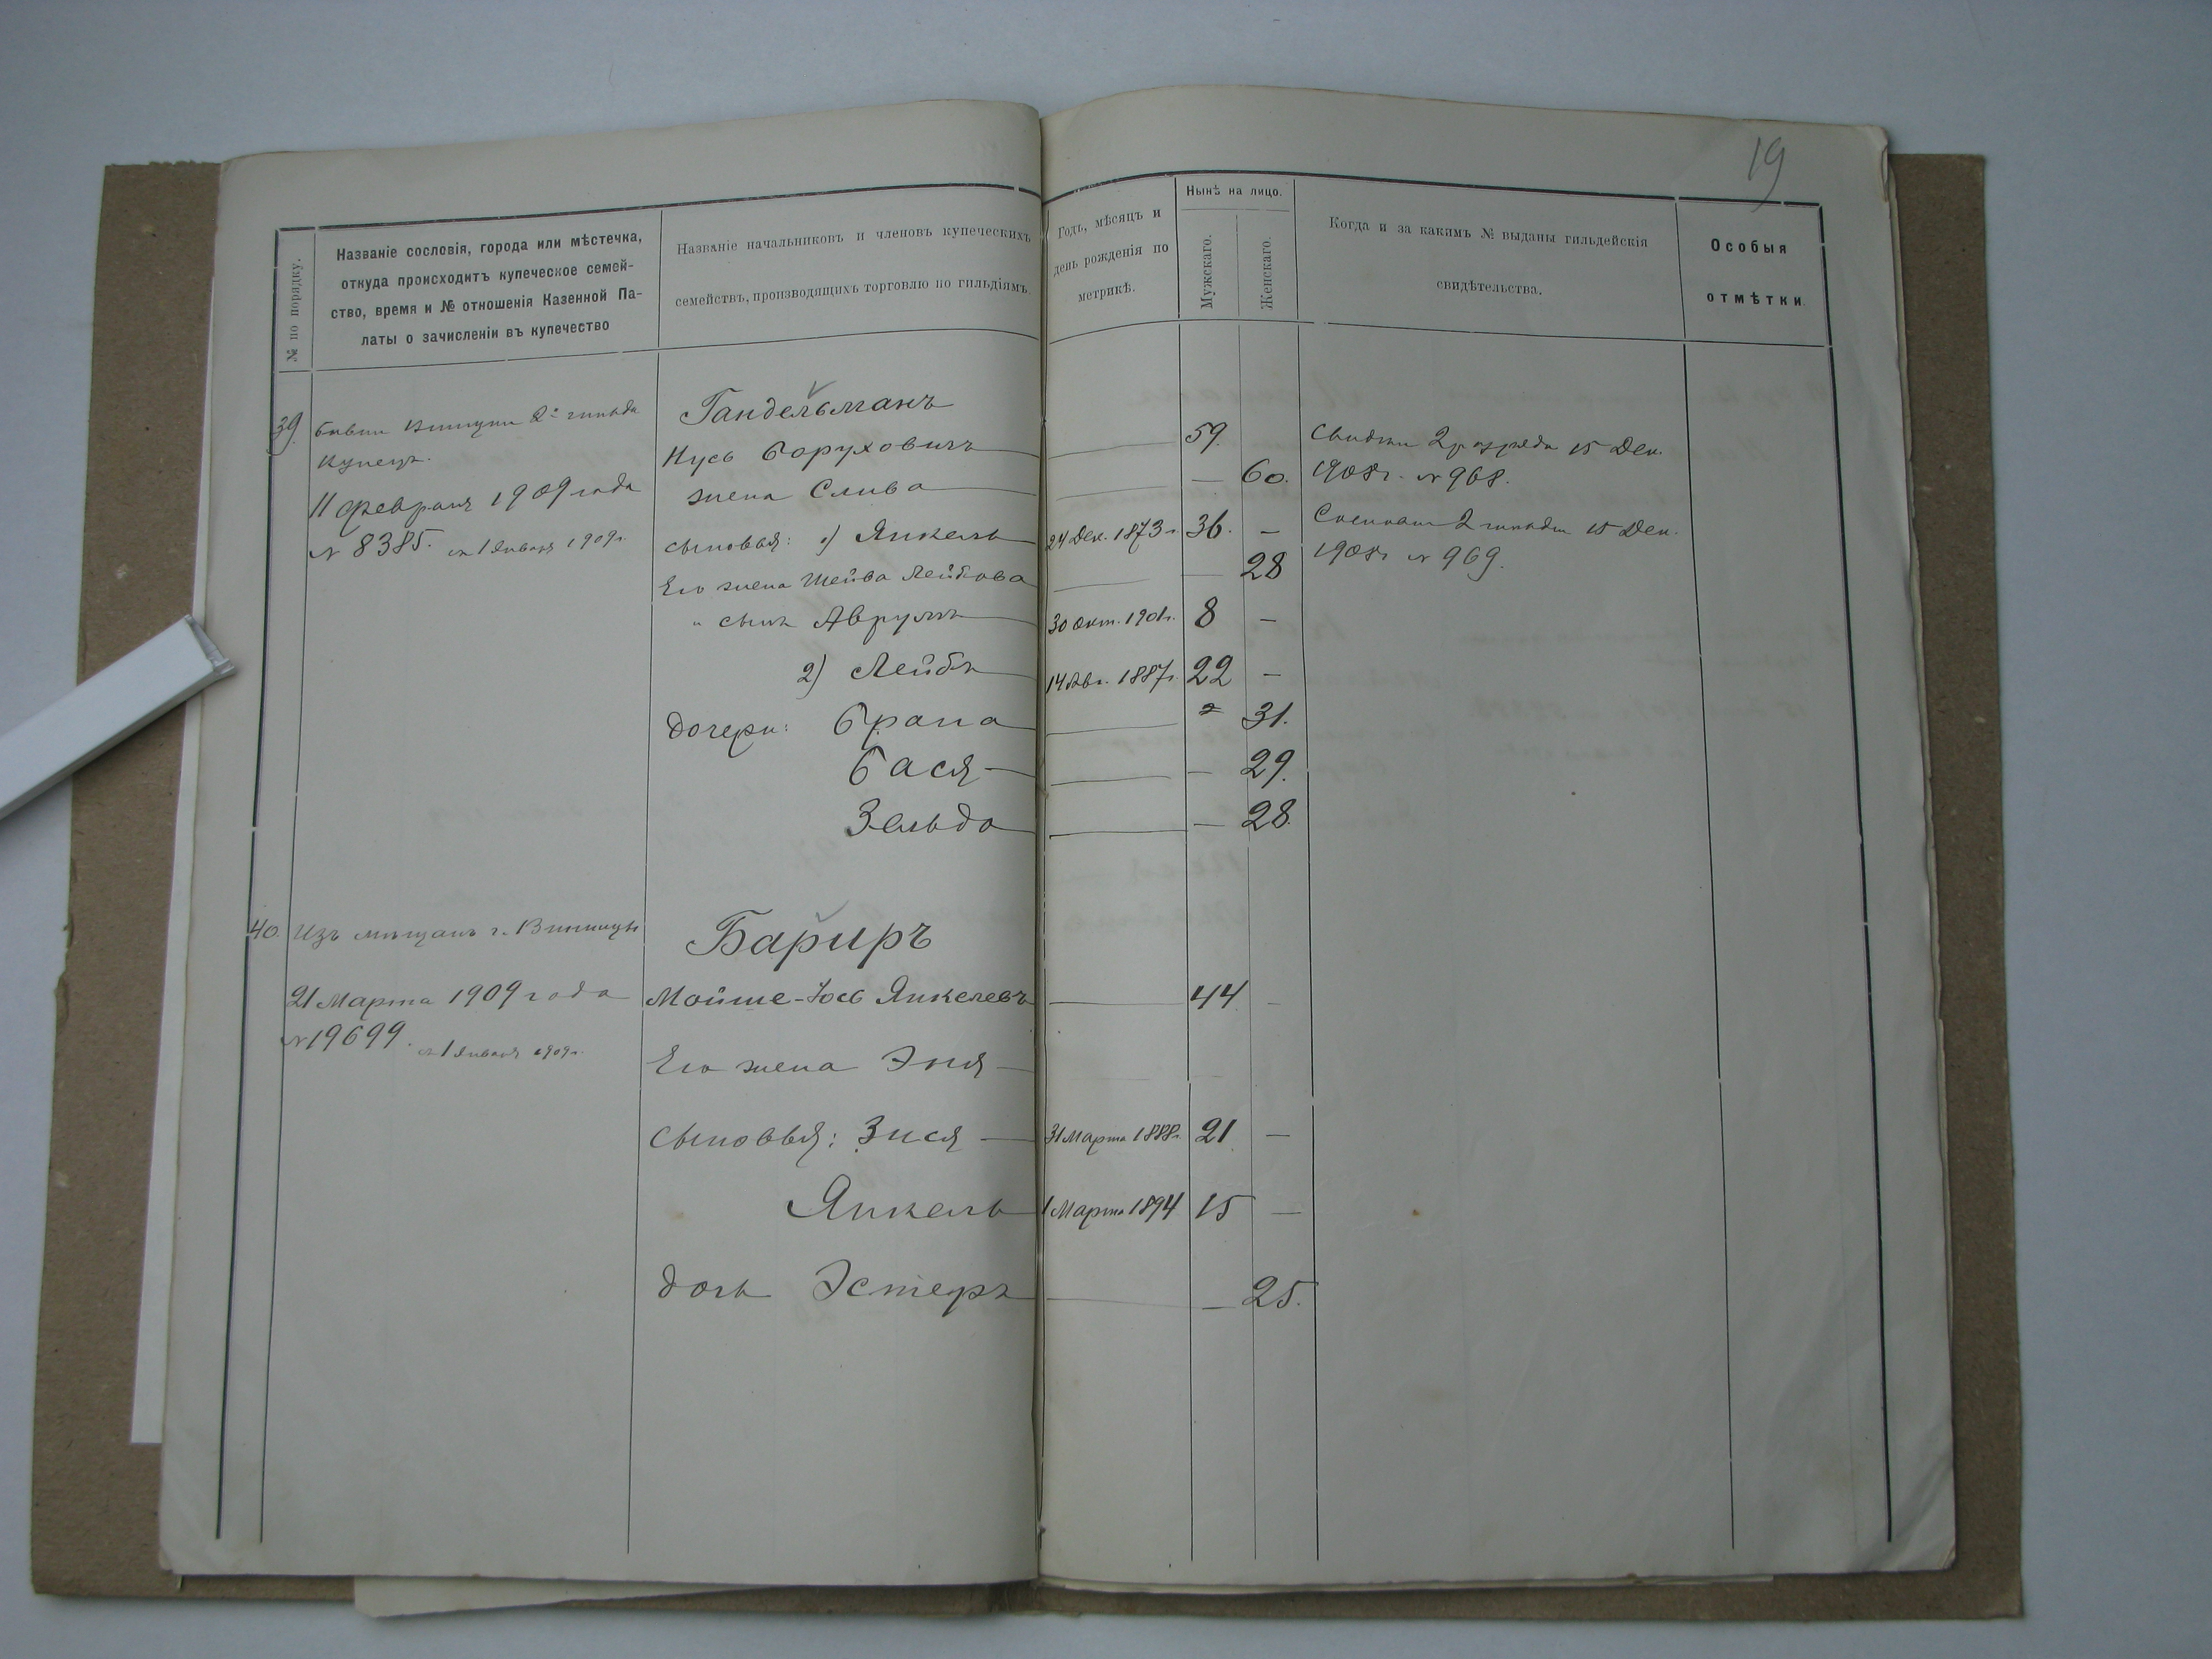 19
№ по порядку.
Названіе сословія, города или мѣстечка,
откуда происходитъ купеческое семей-
ство, время и № отношенія Казенной Па-
латы о зачисленіи въ купечество
Названіе начальниковъ и членовъ купеческихъ
семействъ, производящихъ торговлю по гильдіямъ.
Годъ, мѣсяцъ и
день рожденія по
метрикѣ.
Нынѣ на лицо.
Мужскаго.
Женскаго.
Когда и за какимъ № выданы гильдейскія
свидѣтельства.
Особыя
отмѣтки.
39
2й гильд
купецъ.
11 февраля 1909 года
№ 8385. съ 1 Января 1909г.
Гандельманъ
Нусь Боруховичъ — 59.
жена Слива — — 60.
сыновья: 1) Янкель 24 Дек. 1873 г. 36. —
Его жена Шейва Лейбова — — 28
" сынъ Аврумъ 30 Окт. 1901г. 8 —
2) Лейбъ 14 Авг. 1887г. 22 —
дочери: Брана — 31.
Бася — — 29.
Зельда — — 28.
2 разряда 15 Дек.
1908г. № 968.
Сословн 2 гильдіи 15 Дек.
1908г № 969.
40. Изъ мѣщанъ г. Винницы
21 Марта 1909 года
№ 19699. съ 1 Января 1909г.
Бариръ
Мойше-Іось Янкелевъ — 44 —
Его жена Эня —
сыновья: Зися — 31 Марта 1888г. 21 —
Янкель 1 Марта 1894 15 —
дочь Эстеръ — — 25.